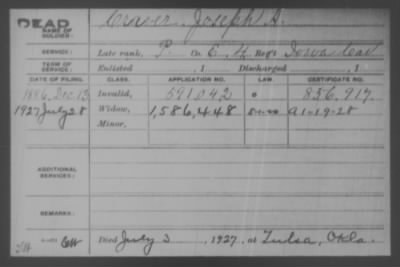 DEAD
NAME OF SOLDIER: Criver, Joseph A.
SERVICE: Late rank, P. Co. E, 4 Reg't Iowa Cav
TERM OF SERVICE: Enlisted , 1 Discharged , 1
DATE OF FILING. CLASS. APPLICATION NO. LAW. CERTIFICATE NO.
1886, Dec. 13 Invalid, 591042 856,917.
1927 July 28 Widow, 1,586,448 A1-19-28
Minor,
ADDITIONAL SERVICES:
REMARKS:
Died July 3, 1927, at Tulsa, Okla.